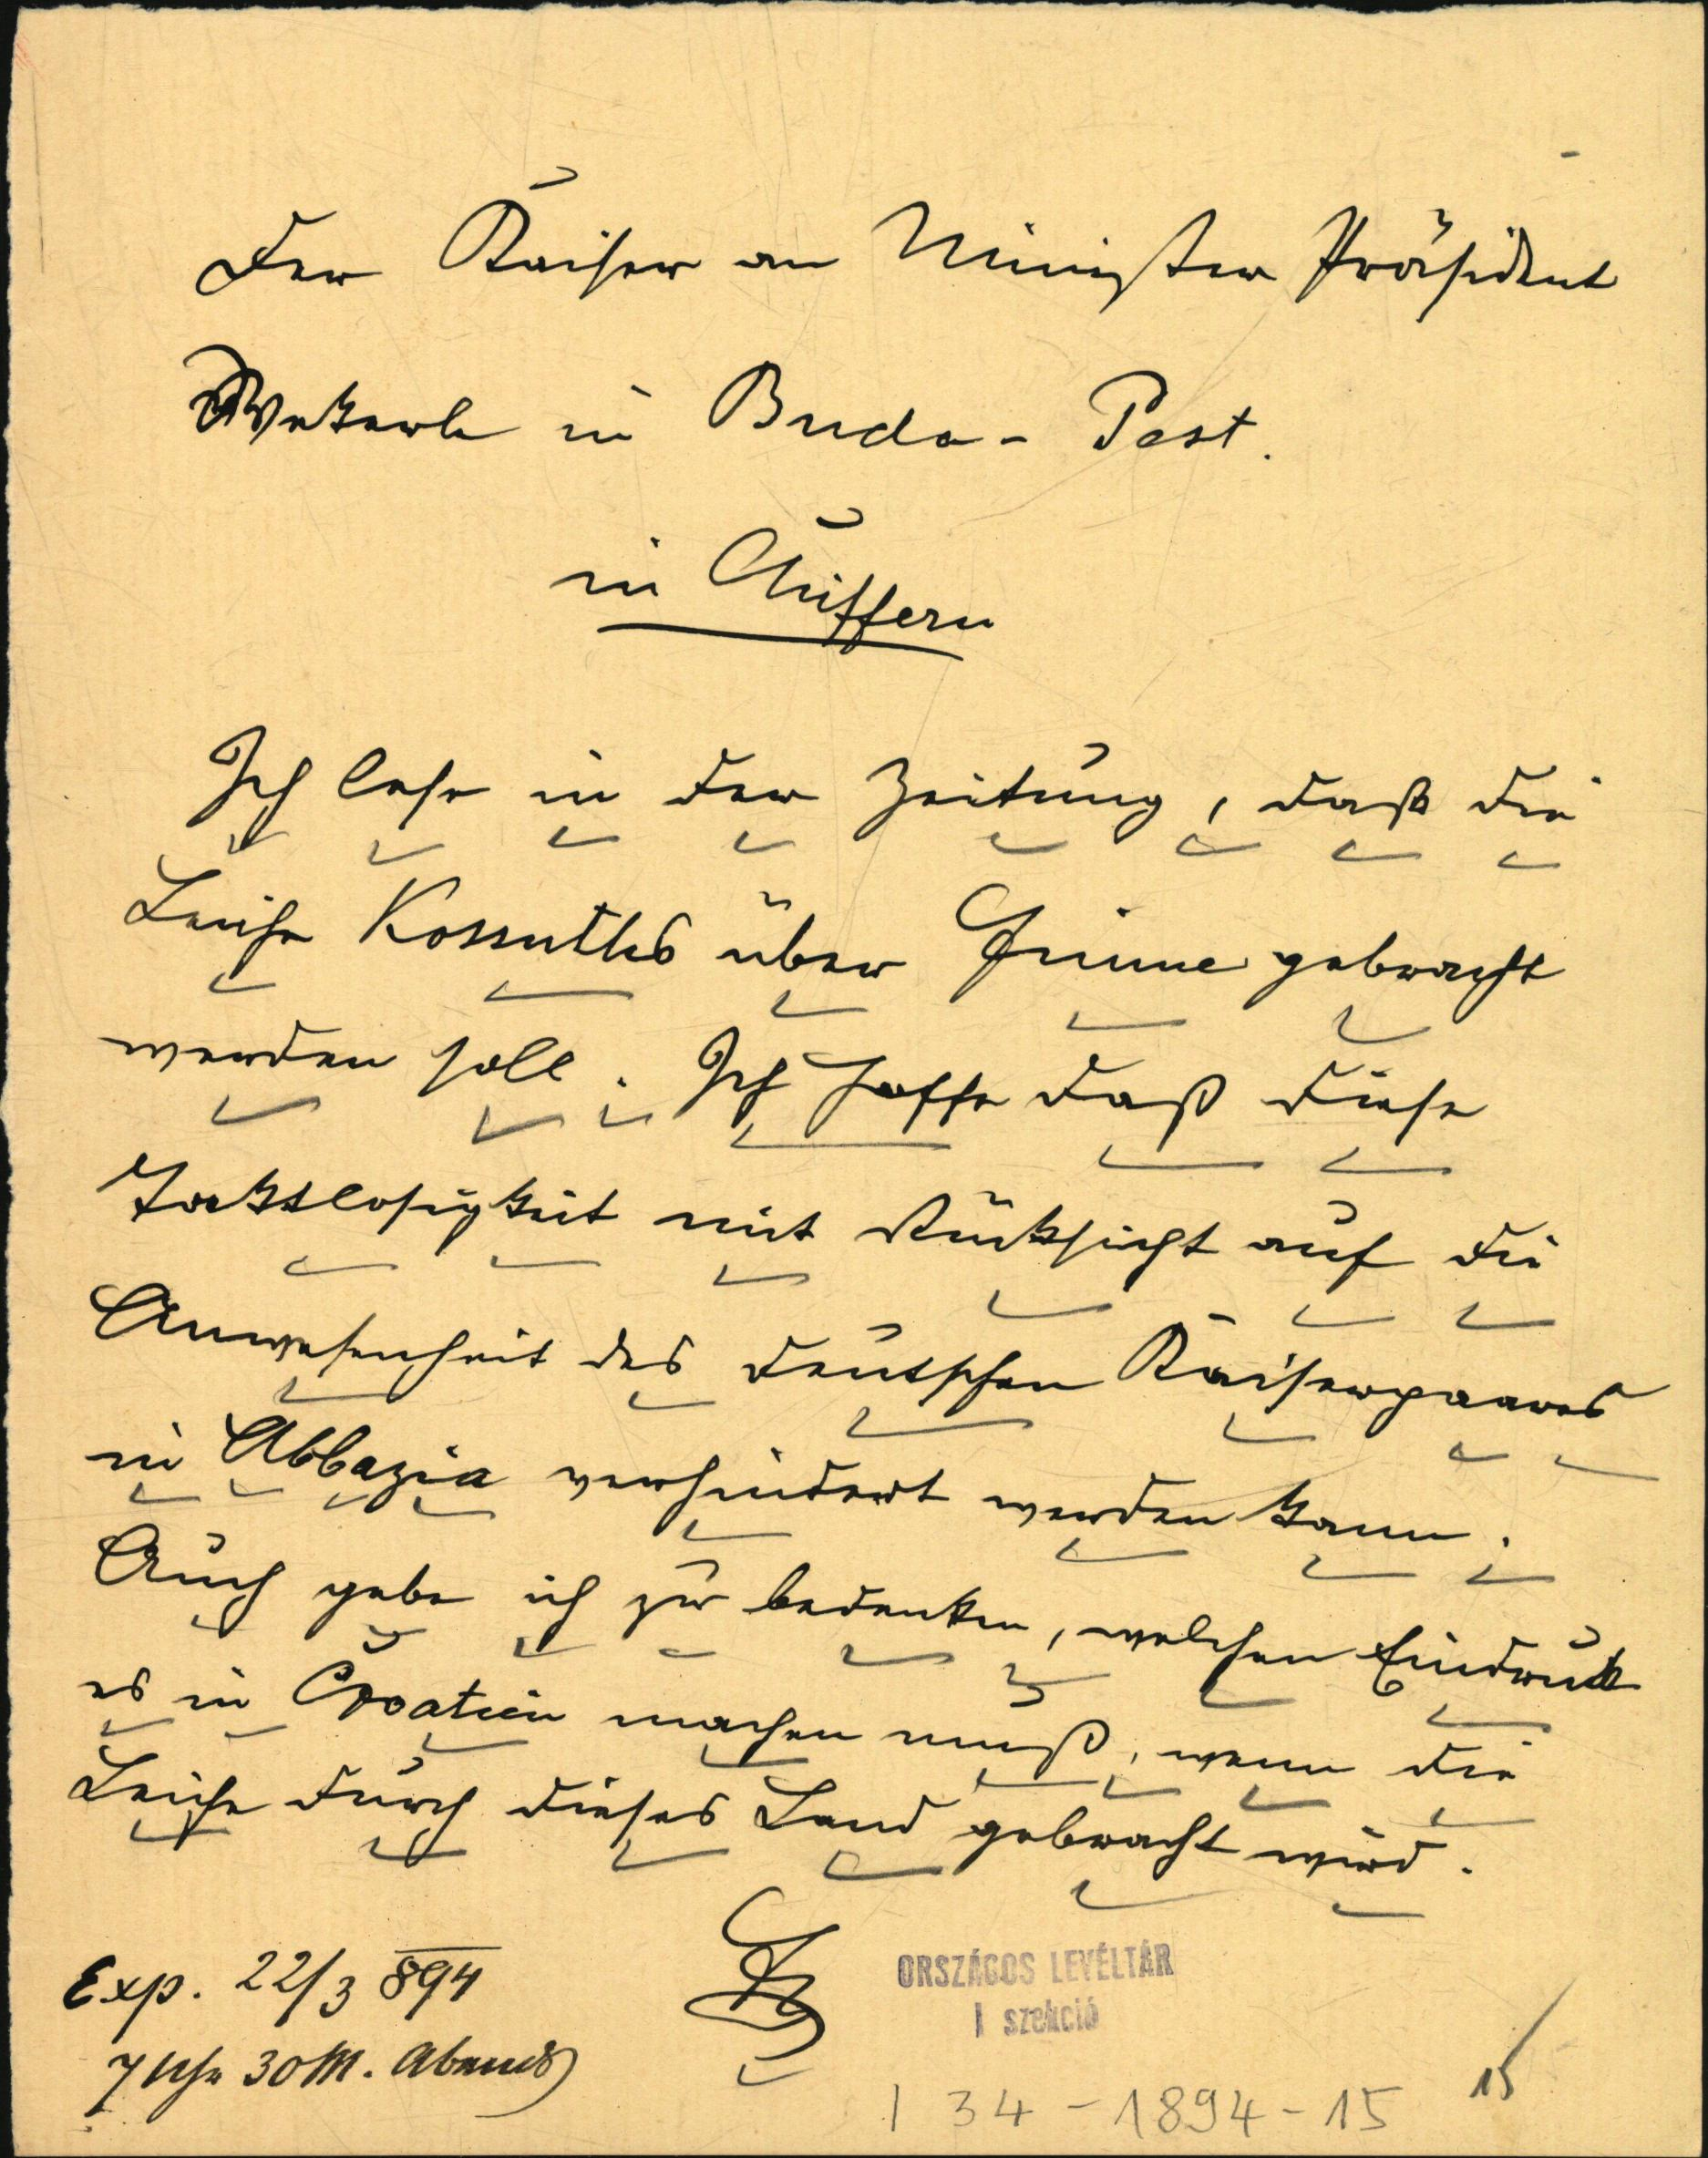 Der Kaiser an Minister Präsident
Wekerle in Buda-Pest.
in Chiffern
Ich lese in der Zeitung, daß die
Leiche Kossuths über Fiume gebracht
werden soll. Ich hoffe daß diese
Taktlosigkeit mit Rücksicht auf die
Anwesenheit des deutschen Kaiserpaares
in Abbazia verhindert werden kann.
Auch gebe ich zur bedenken, welchen Eindruck
es in Croatien machen muß, wenn die
Leiche durch dieses Land gebracht wird.
Exp. 22/3 894
7 Uhr 30 M. Abends
ORSZÁGOS LEVÉLTÁR
I szekció
I 34-1894-15
15